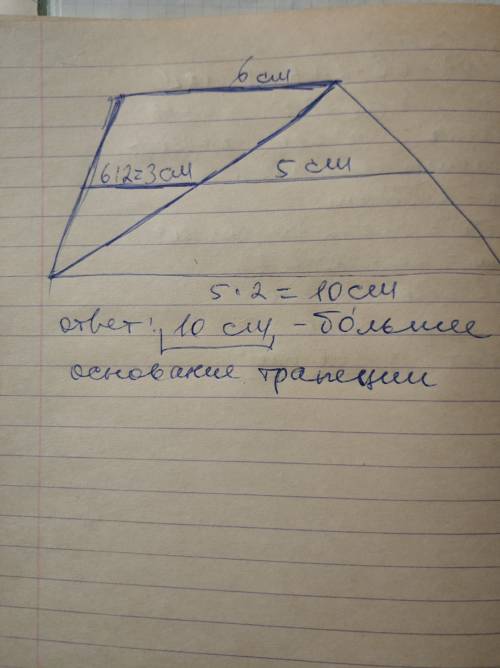 6 см
6:2=3см
5 см
5·2=10см
ответ: 10 см - бо́льшее
основание трапеции